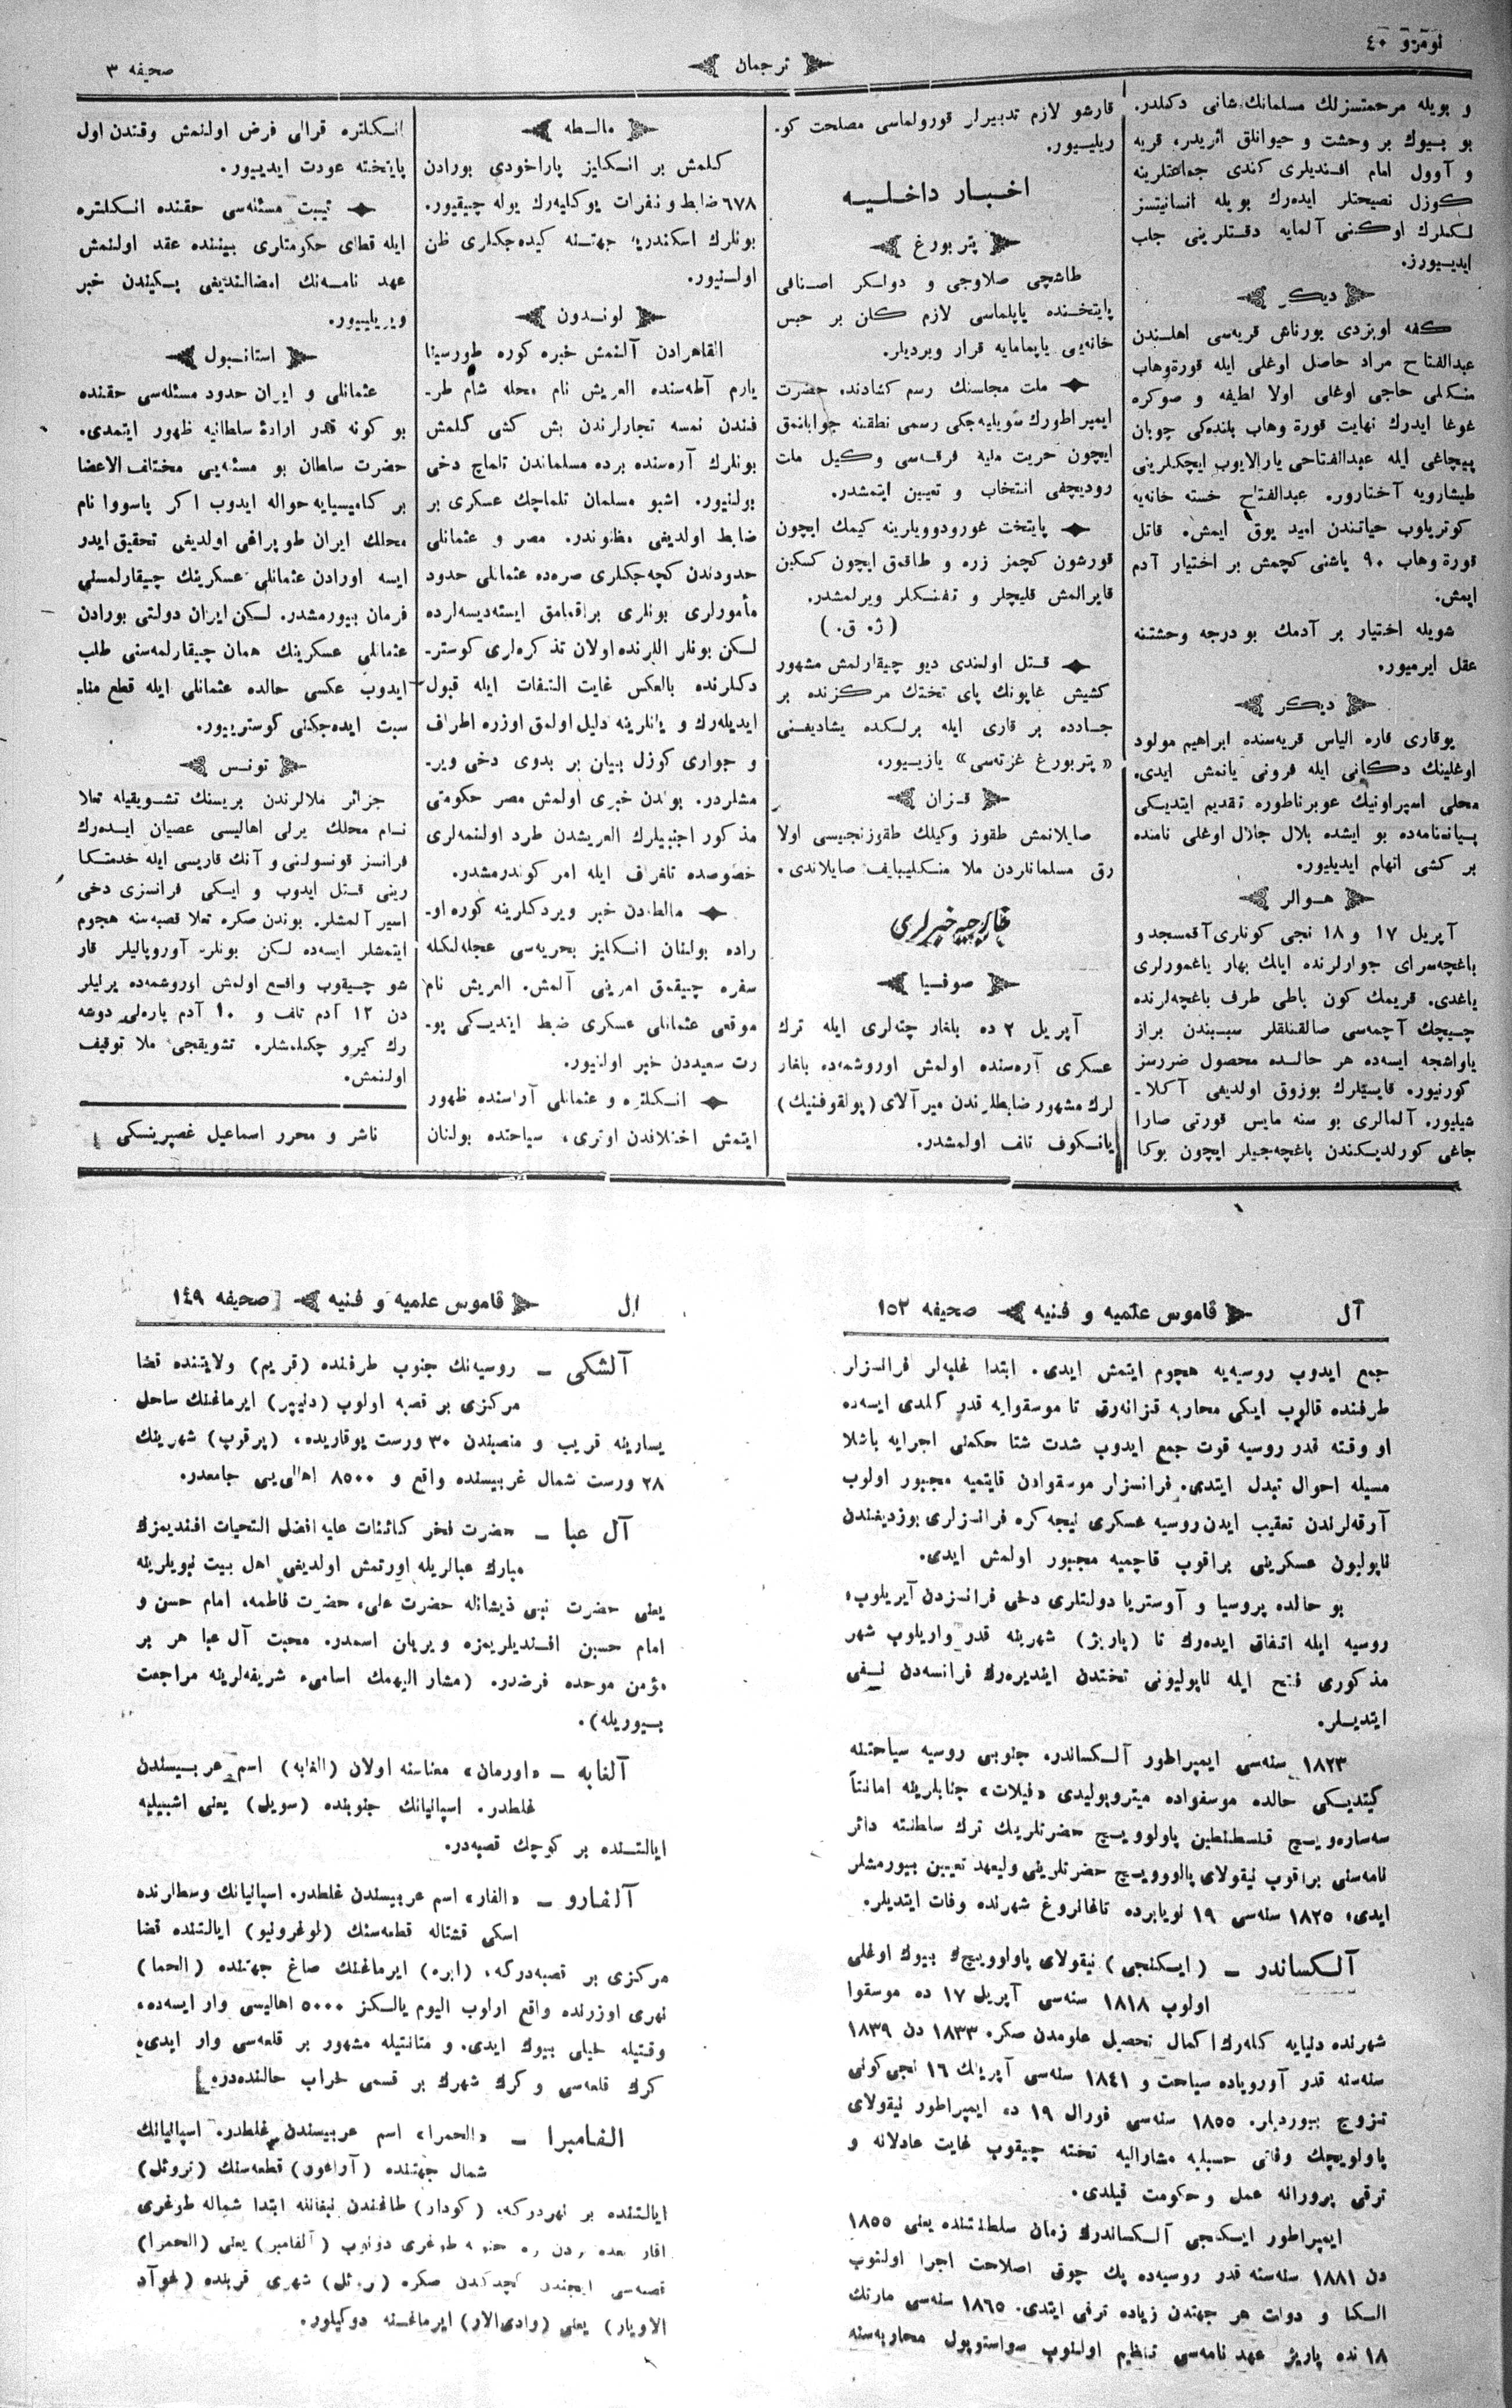 نومرو ٤٠
ترجمان
صحیفه ٣
و بویله مرحمتسزلك مسلمانك شانی دكلدر.
بو بیوك بر وحشت و حیوانلق اثریدر، قریه
و آوول امام افندیلری كندی جماعتلرینه
كوزل نصیحتلر ایده‌رك بویله انسانیتسز
لكلرك اوكنی آلمایه دقتلرینی جلب
ایدییورز.
دیكر
كفه اویزدی بورناش قریه‌سی اهلندن
عبدالفتاح مراد حاصل اوغلی ایله قورة‌وهاب
منكلی حاجی اوغلی اولا لطیفه و صوكره
غوغا ایدرك نهایت قورة وهاب یلنده‌كی چوبان
پیچاغی ایله عبدالفتاحی یارالایوب ایچكلرینی
طیشارویه آختارور. عبدالفتاح خسته خانه‌یه
كوتریلوب حیاتندن امید یوق ایمش. قاتل
قورة وهاب ٩٠ یاشنی كچمش بر اختیار آدم
ایمش.
شویله اختیار بر آدمك بو درجه وحشتنه
عقل ایرمیور.
دیكر
یوقاری قاره الیاس قریه‌سنده ابراهیم مولود
اوغلینك دكانی ایله فرونی یانمش ایدی.
محلی اسپراونیك غوبرناطوره تقدیم ایتدیكی
بیاننامه‌ده بو ایشده بلال جلال اوغلی نامنده
بر كشی اتهام ایدیلیور.
هوالر
آپریل ١٧ و ١٨ نجی كونلری آقمسجد و
باغچه‌سرای جوارلرنده ایالك بهار یاغمورلری
یاغدی. قریمك كون باطی طرف باغچه‌لرنده
چیچك آچمه‌سی صالقنلقلر سببندن براز
یاواشجه ایسه‌ده هر حالده محصول ضررسز
كورنیور. قایسیلرك بوزوق اولدیغی آكلا-
شیلیور. آلمالری بو سنه مایس قورتی صارا
جاغی كورلدیكندن باغچه‌جیلر ایچون بوكا
قارشو لازم تدبیرلر قورولماسی مصلحت كو-
ریلیور.
اخبار داخلیه
پتربورغ
طاشچی صلاوجی و دولكر اصنافی
پایتخنده یاپلماسی لازم كلن بر حبس
خانه‌یی یاپمامایه قرار ویردیلر.
ملت مجلسنك رسم كشادنده حضرت
ایمپراطورك سویلیه‌جكی رسمی نطقنه جوابلنمق
ایچون حریت ملیه فرقه‌سی وكیل ملت
رودیچفی انتخاب و تعیین ایتمشدر.
پایتخت غورودوویلرینه كیمك ایچون
قورشون كچمز زره و طاقمق ایچون كسكین
قایرالمش قلیچلر و تفنكلر ویرلمشدر.
(ژ. ق.)
قتل اولندی دیو چیقارلمش مشهور
كشیش غاپونك پای تختك مركزنده بر
جادده بر قاری ایله برلكده یشادیغنی
«پتربورغ غزته‌سی» یازیيور.
قزان
صایلانمش طقوز وكیلك طقوزنجیسی اولا
رق مسلمانلردن ملا منكلیبایف صایلاندی.
خارجیه خبرلری
صوفیا
آپریل ٢ ده بلغار چته‌لری ایله ترك
عسكری آره‌سنده اولمش اوروشمه‌ده بلغار
لرك مشهور ضابطلرندن میر آلای (پولقوفنیك)
یانسكوف تلف اولمشدر.
مالطه
كلمش بر انكلیز پاراخودی بورادن
٦٧٨ ضابط و نفرات یوكلیه‌رك یوله چیقیور.
بونلرك اسكندریه جهتنه كیده‌جكلری ظن
اولنیور.
لوندون
القاهره‌دن آلنمش خبره كوره طورسینا
یارم آطه‌سنده العریش نام محله شام طر-
فندن نمسه تجارلرندن بش كشی كلمش
بونلرك آره‌سنده برده مسلماندن تلماج دخی
بولنیور. اشبو مسلمان تلماچك عسكری بر
ضابط اولدیغی مظنوندر. مصر و عثمانلی
حدودندن كچه‌جكلری صره‌ده عثمانلی حدود
مأمورلری بونلری براقمامق ایسته‌دیسه‌لرده
لكن بونلر اللرنده اولان تذكره‌لری كوستر-
دكلرنده بالعكس غایت التفات ایله قبول
ایدیله‌رك و یانلرینه دلیل اولمق اوزره اطراف
و جواری كوزل بیان بر بدوی دخی ویر-
مشلردر. بوندن خبری اولمش مصر حكومتی
مذكور اجنبیلرك العریشدن طرد اولنمه‌لری
خصوصده تلغراف ایله امر كوندرمشدر.
مالطه‌دن خبر ویردكلرینه كوره او-
راده بولنان انكلیز بحریه‌سی عجله‌لكله
سفره چیقمق امرینی آلمش. العریش نام
موقعی عثمانلی عسكری ضبط ایتدیكی پو-
رت سعیددن خبر اولنیور.
انكلتره و عثمانلی آراسنده ظهور
ایتمش اختلافدن اوتری، سیاحتده بولنان
انكلتره قرالی فرض اولنمش وقتدن اول
پایتخته عودت ایدییور.
تیبت مسئله‌سی حقنده انكلتره
ایله قطای حكومتلری بیننده عقد اولنمش
عهد نامه‌نك امضالندیغی پكیندن خبر
ویریلییور.
استانبول
عثمانلی و ایران حدود مسئله‌سی حقنده
بو كونه قدر ارادۀ سلطانیه ظهور ایتمدی.
حضرت سلطان بو مسئله‌یی مختلف الاعضا
بر كامیسیایه حواله ایدوب اكر پاسووا نام
محلك ایران طوپراغی اولدیغی تحقیق ایدر
ایسه اورادن عثمانلی عسكرینك چیقارلمسنی
فرمان بیورمشدر. لكن ایران دولتی بورادن
عثمانلی عسكرینك همان چیقارلمه‌سنی طلب
ایدوب عكسی حالده عثمانلی ایله قطع منا-
سبت ایده‌جكنی كوسترییور.
تونس
جزائر ملالرندن بریسنك تشویقیله تعلا
نام محلك یرلی اهالیسی عصیان ایده‌رك
فرانسز قونسولنی و آنك قاریسی ایله خدمتكا
رینی قتل ایدوب و ایكی فرانسزی دخی
اسیر آلمشلر. بوندن صكره تعلا قصبه‌سنه هجوم
ایتمشلر ایسه‌ده لكن بونلره آوروپالیلر قار
شو چیقوب واقع اولمش اوروشمه‌ده یرلیلر
دن ١٢ آدم تلف و ١٠ آدم یاره‌لی دوشه
رك كیرو چكلمشلر. تشویقجی ملا توقیف
اولنمش.
ناشر و محرر اسماعیل غصپرینسكی
آل
قاموس علمیه و فنیه
صحیفه ١٥٢
جمع ایدوب روسیه‌یه هجوم ایتمش ایدی. ابتدا غلبه‌لر فرانسزلر
طرفنده قالوب ایكی محاربه قزانه‌رق تا موسقوایه قدر كلدی ایسه‌ده
او وقته قدر روسیه قوت جمع ایدوب شدت شتا حكمنی اجرایه باشلا
مسیله احوال تبدل ایتدی. فرانسزلر موسقوادن قایتمیه مجبور اولوب
آرقه‌لرندن تعقیب ایدن روسیه عسكری نیجه كره فرانسزلری بوزدیغندن
ناپولیون عسكرینی براقوب قاچمیه مجبور اولمش ایدی.
بو حالده پروسیا و آوستریا دولتلری دخی فرانسزدن آیریلوب،
روسیه ایله اتفاق ایده‌رك تا (پاریز) شهرینه قدر واریلوب شهر
مذكوری فتح ایله ناپولیونی تختدن ایندیره‌رك فرانسه‌دن نفی
ایتدیلر.
١٨٢٣ سنه‌سی ایمپراطور آلكساندر، جنوبی روسیه سیاحتنه
كیتدیكی حالده موسقواده میتروپولیدی «فیلات» جنابلرینه امانتاً
سه‌ساره‌ویچ قنسطنطین پاولوویچ حضرتلرینك ترك سلطنته دائر
نامه‌سنی براقوب نیقولای پالووویچ حضرتلرینی ولیعهد تعیین بیورمشلر
ایدی، ١٨٢٥ سنه‌سی ١٩ نویابرده تاغانروغ شهرنده وفات ایتدیلر.
آلكساندر - (ایكنجی) نیقولای پاولوویچك بیوك اوغلی
اولوب ١٨١٨ سنه‌سی آپریل ١٧ ده موسقوا
شهرنده دنیایه كله‌رك اكمال تحصیل علومدن صكره ١٨٣٣ دن ١٨٣٩
سنه‌سنه قدر آوروپاده سیاحت و ١٨٤١ سنه‌سی آپریلك ١٦ نجی كونی
تزوج بیوردیلر. ١٨٥٥ سنه‌سی فورال ١٩ ده ایمپراطور نیقولای
پاولویچك وفاتی حسبیله مشارالیه تخته چیقوب غایت عادلانه و
ترقی پرورانه عمل و حكومت قیلدی.
ایمپراطور ایكنجی آلكساندرك زمان سلطنتنده یعنی ١٨٥٥
دن ١٨٨١ سنه‌سنه قدر روسیه‌ده پك چوق اصلاحت اجرا اولنوب
السكا و دولت هر جهتدن زیاده ترقی ایتدی. ١٨٦٥ سنه‌سی مارتك
١٨ نده پاریز عهدنامه‌سی تنظیم اولنوب سواستوپول محاربه‌سنه
ال
قاموس علمیه و فنیه
صحیفه ١٤٩
آلشكی - روسیه‌نك جنوب طرفنده (قریم) ولایتنده قضا
مركزی بر قصبه اولوب (دنیپر) ایرماغنك ساحل
یسارینه قریب و منصبندن ٣٠ ورست یوقاریده، (پرقوپ) شهرینك
٢٨ ورست شمال غربیسنده واقع و ٨٥٠٠ اهالی‌یی جامعدر.
آل عبا - حضرت فخر كائنات علیه افضل التحیات افندیمزك
مبارك عبالریله اورتمش اولدیغی اهل بیت نبویلرینه
یعنی حضرت نبی ذیشانله حضرت علی، حضرت فاطمه، امام حسن و
امام حسین افندیلریمزه ویریلن اسمدر. محبت آل عبا هر بر
مؤمن موحده فرضدر. (مشار الیهمك اسامیء شریفه‌لرینه مراجعت
بیوریله).
آلغابه - «اورمان» معناسنه اولان (الغابه) اسم عربیسندن
غلطدر. اسپانیانك جنوبنده (سویل) یعنی اشبیلیه
ایالتنده بر كوچك قصبه‌در.
آلفارو - «الفار» اسم عربیسندن غلطدر. اسپانیانك وسطلرنده
اسكی قشتاله قطعه‌سنك (لوغرونیو) ایالتنده قضا
مركزی بر قصبه‌دركه، (ابره) ایرماغنك صاغ جهتنده (الحما)
نهری اوزرنده واقع اولوب الیوم یالكز ٥٠٠٠ اهالیسی وار ایسه‌ده،
وقتیله خیلی بیوك ایدی. و متانتیله مشهور بر قلعه‌سی وار ایدی،
كرك قلعه‌سی و كرك شهرك بر قسمی خراب حالنده‌در.
الفامبرا - «الحمرا» اسم عربیسندن غلطدر. اسپانیانك
شمال جهتنده (آراغون) قطعه‌سنك (تروئل)
ایالتنده بر نهردركه، (كودار) طاغندن نبعانله ابتدا شماله طوغری
طوغری دونوب (آلفامبر) یعنی (الحمرا)
قصبه‌سی صكره (تروئل) شهری قربنده (غوآد
الاویار) یعنی (وادی‌الار) ایرماغنه دوكیلور.